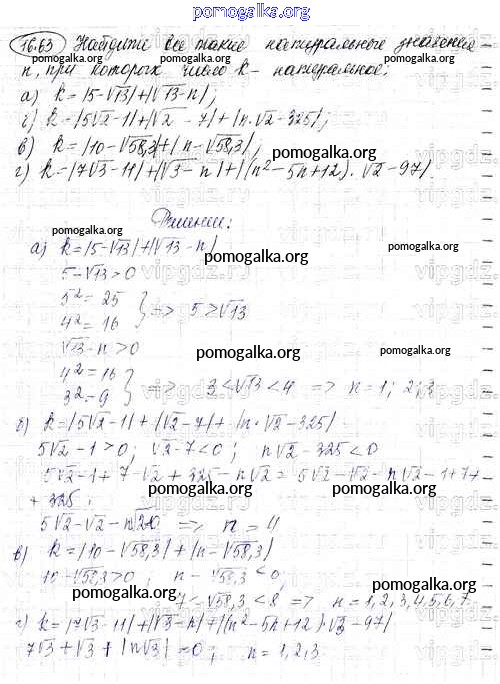 pomogalka.org
16.63 Найдите все такие натуральные значения
n, при которых число k - натуральное:
pomogalka.org
а) k=|5-√13|+|√13-n|;
г) k=|5√2-1|+|√2-7|+|n·√2-325|;
в) k=|10-√58,3|+|n-√58,3|;
pomogalka.org
г) k=|7√3-11|+|√3-n|+|(n²-5n+12)·√2-97|
pomogalka.org
Решение:
а) k=|5-√13|+|√13-n|
pomogalka.org
5-√13>0
5²=25
4²=16 } => 5>√13
√13-n>0
pomogalka.org
4²=16
3²=9 } => 3<√13<4 => n=1; 2; 3
б) k=|5√2-1|+|√2-7|+|n·√2-325|
5√2-1>0; √2-7<0; n√2-325<0
5√2-1+7-√2+325-n√2=5√2-√2-n√2-1+7+
+325;
pomogalka.org
pomogalka.org
5√2-√2-n√2=0 => n=4
в) k=|10-√58,3|+|n-√58,3|
10-√58,3>0; n-√58,3<0;
pomogalka.org
pomogalka.org
7<√58,3<8 => n=1,2,3,4,5,6,7
г) k=|7√3-11|+|√3-n|+|(n²-5n+12)·√3-97|
7√3+√3+|n√3|=0; n=1,2,3
pomogalka.org